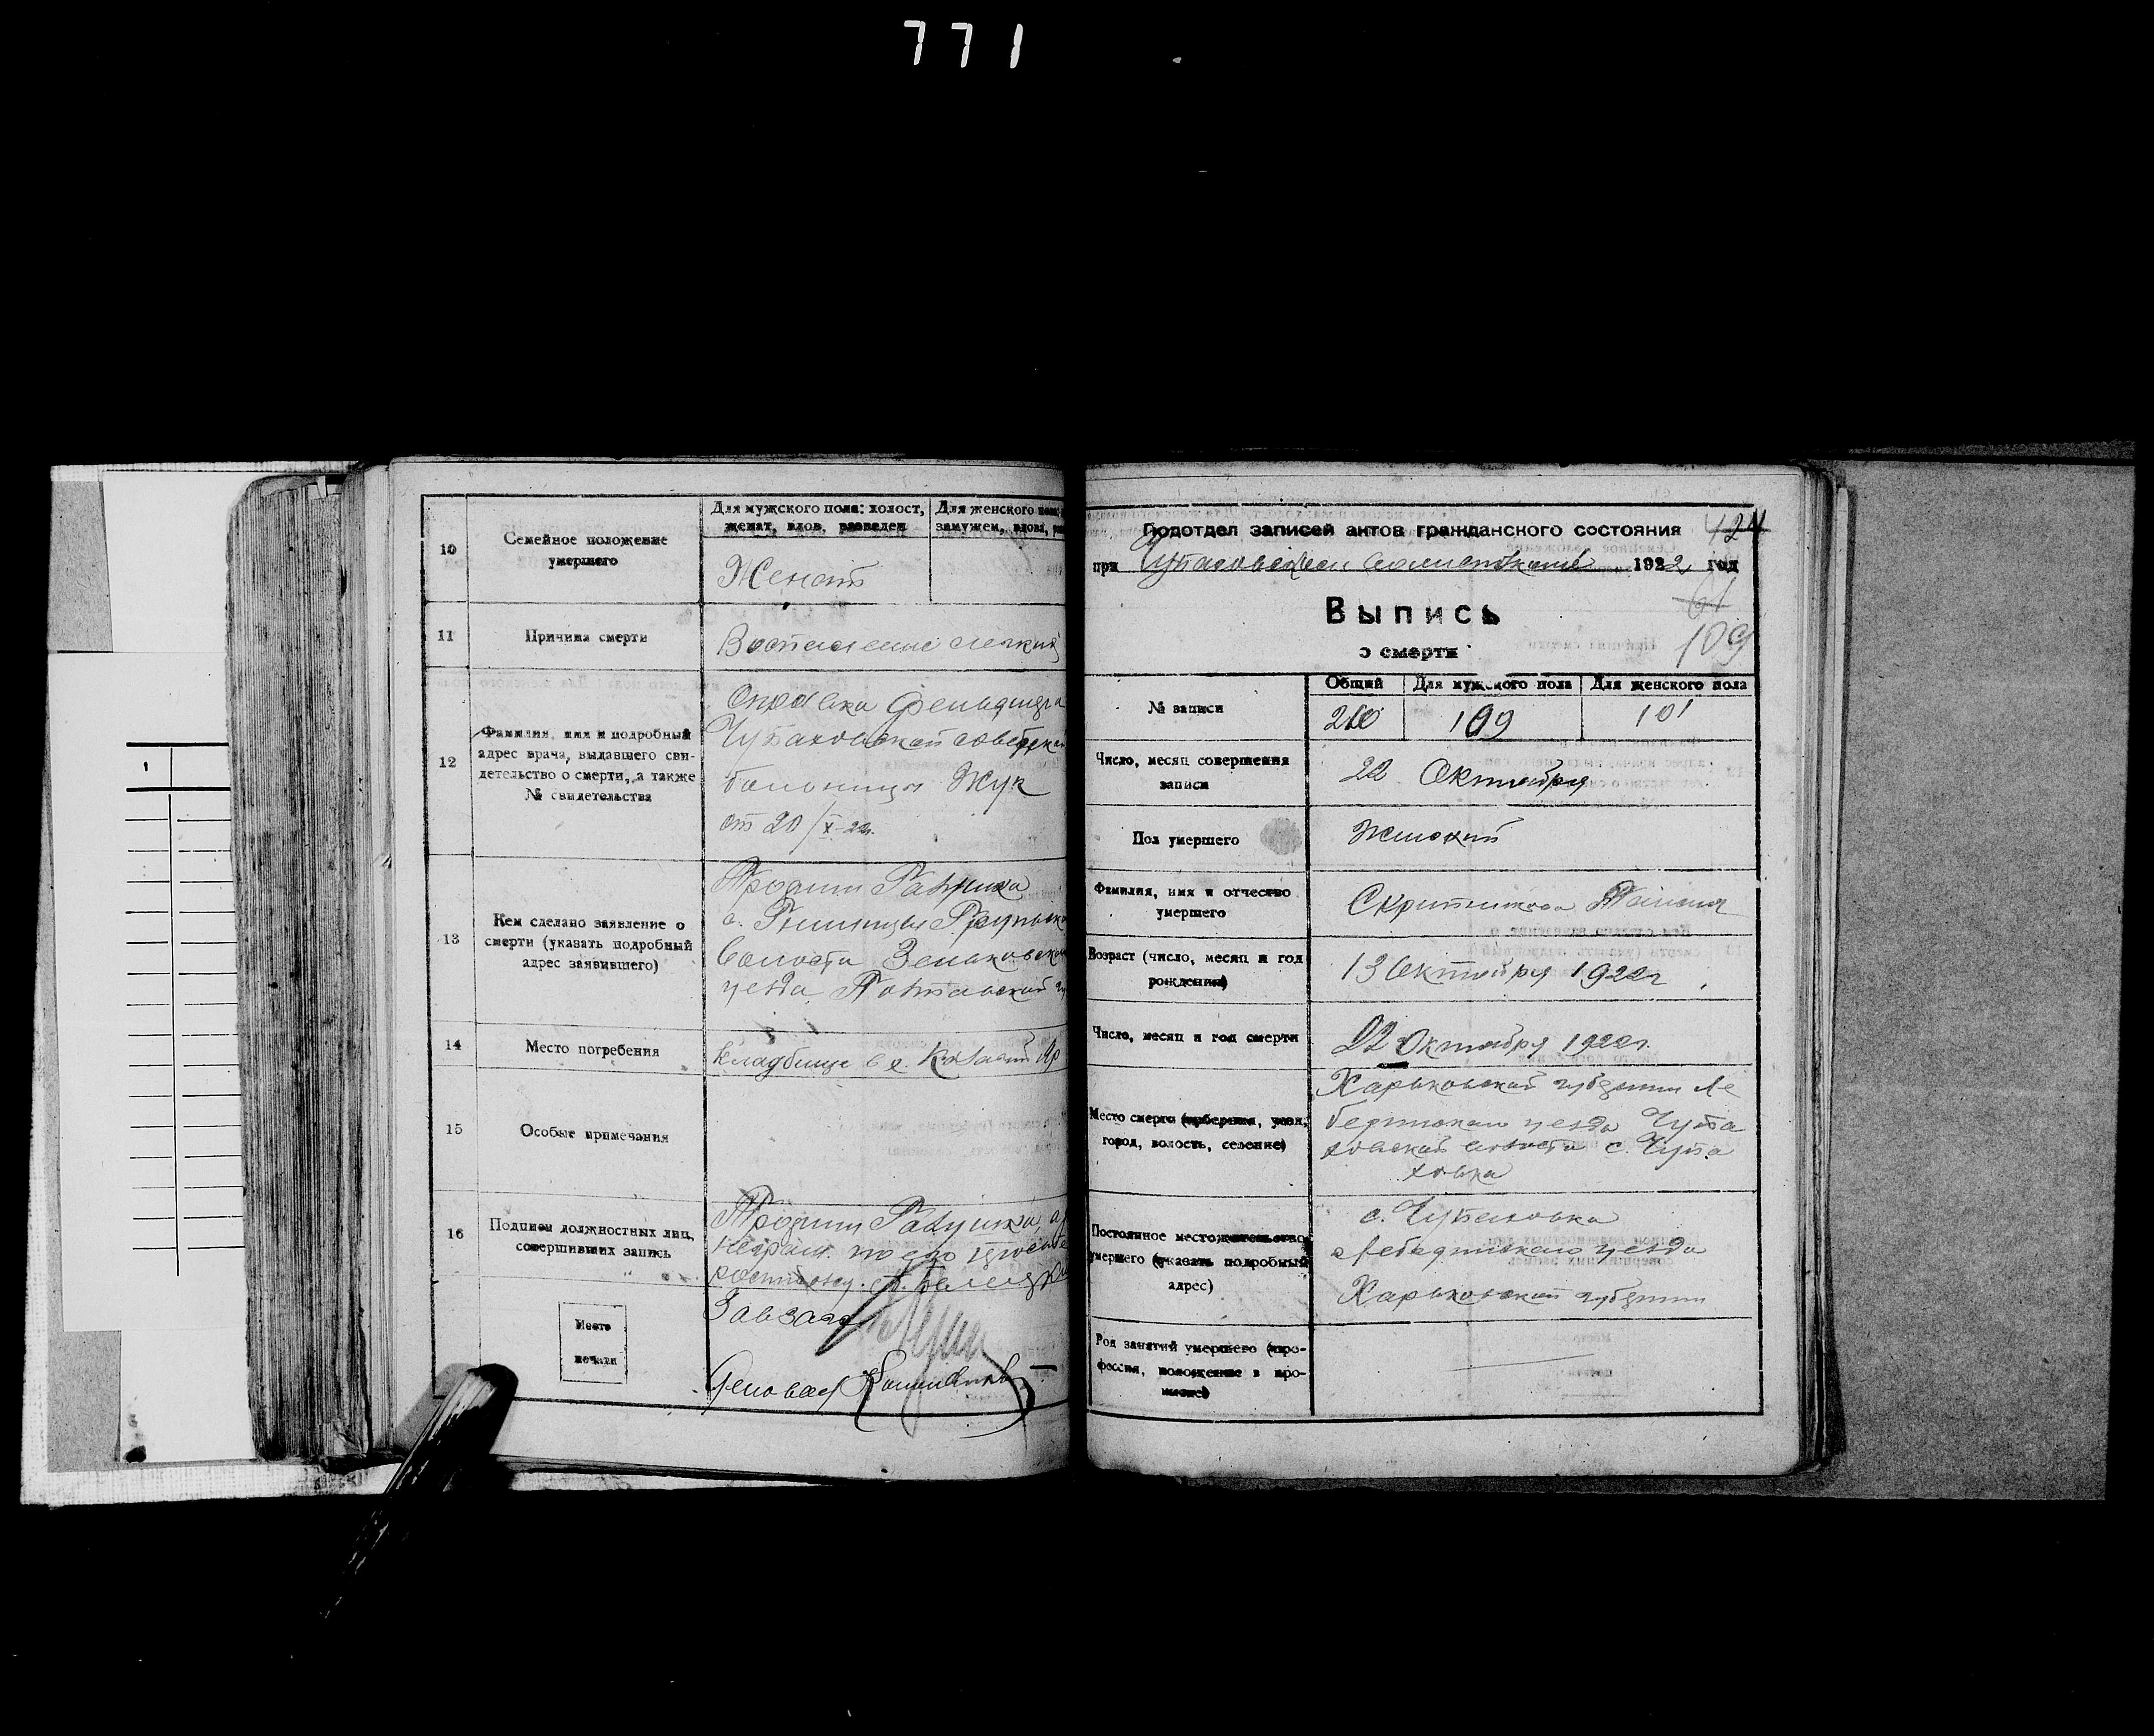 771
10
Семейное положение
умершего
Для мужского пола: холост,
женат, вдов, разведен
Для женского пола:
замужем, вдова,
Женат
11
Причина смерти
Воспаление легких
12
Фамилия, имя и подробный
адрес врача, выдавшего сви-
детельство о смерти, а также
№ свидетельства
Справка фельдшера
Чупаховской советской
больницы Жук
от 20/X-22г.
13
Кем сделано заявление о
смерти (указать подробный
адрес заявившего)
Трофим
с.
Волости Зеньковского
уезда Полтавской
14
Место погребения
Кладбище в с.
15
Особые примечания
16
Подписи должностных лиц,
совершивших запись
Трофим
неграм. по его
Место
печати
Завзаг
Деловод
Подотдел записей актов гражданского состояния
424
при Чупаховском 1922 год
61
Выпись
о смерти
109
№ записи
Общий
Для мужского пола
Для женского пола
210
109
101
Число, месяц совершения
записи
22 Октября
Пол умершего
Женский
Фамилия, имя и отчество
умершего
Возраст (число, месяц и год
рождения)
13 Октября 1922г
Число, месяц и год смерти
22 Октября 1922г.
Место смерти (губерния, уезд,
город, волость, селение)
Харьковской губернии Ле
бединского уезда Чупа
ховской волости с. Чупа
ховка
Постоянное местожительство
умершего (указать подробный
адрес)
с. Чупаховка
Лебединского уезда
Харьковской губернии
Род занятий умершего (про-
фессия, положение в про-
мысле)
1